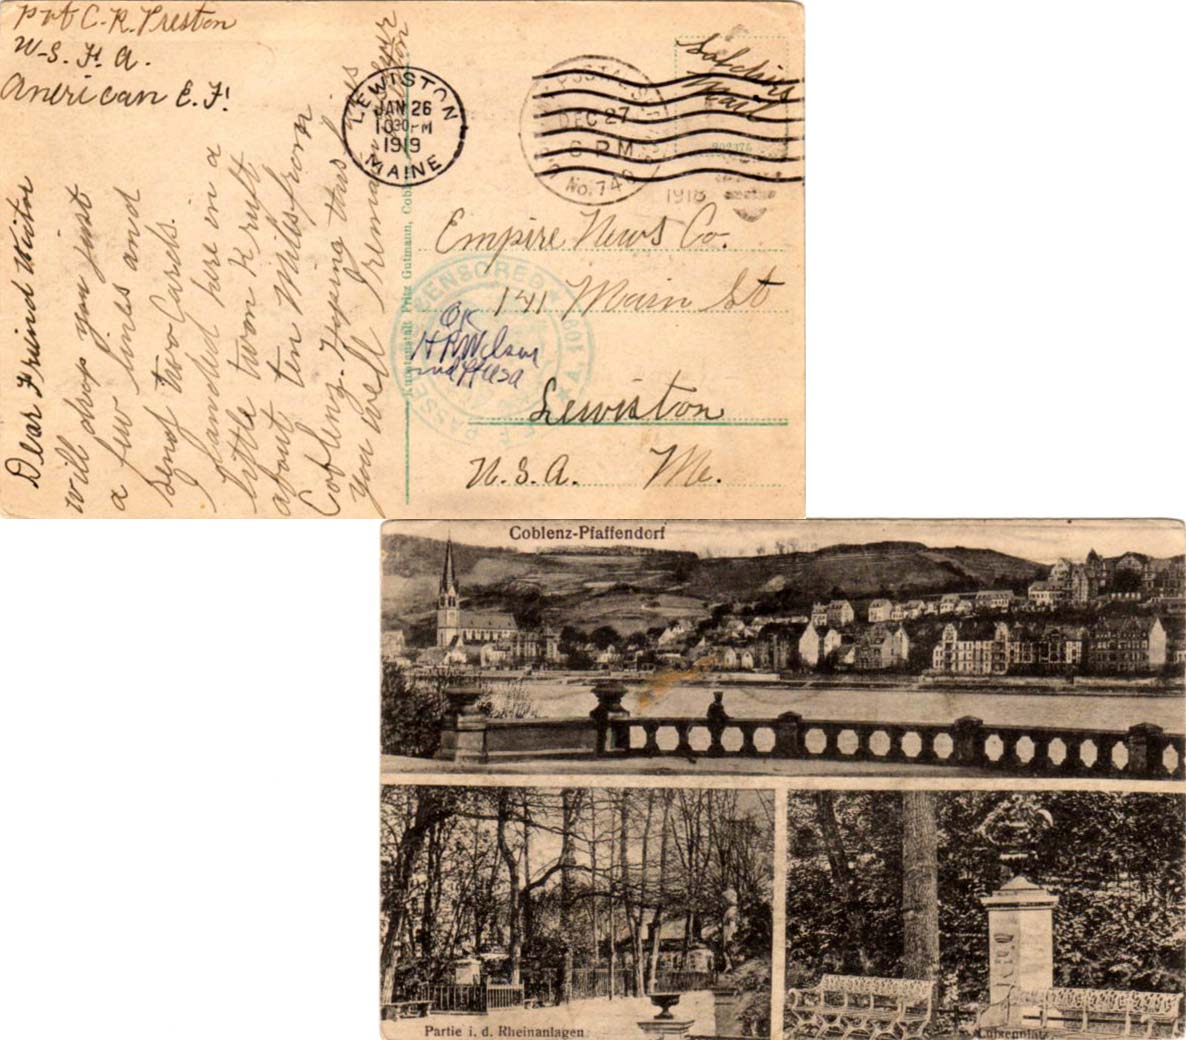 Pvt C. R. Preston
W-S. F. A.
American E. F.
LEWISTON
JAN 26
1030 PM
1919
MAINE
POSTAL
DEC 27
6 PM
No. 74
1918
Soldiers
Mail
Dear Friend
will drop you just
a few lines and
send two Cards.
I landed here in a
little town Kruft
about ten Miles from
Coblenz. Hoping this
you well I remain
Empire News Co.
141 Main St
Lewiston
U.S.A. Me.
CENSORED
OK
Kunstanstalt Fritz Gutmann, Cobl
Coblenz-Pfaffendorf
Partie i. d. Rheinanlagen
Luisenplatz